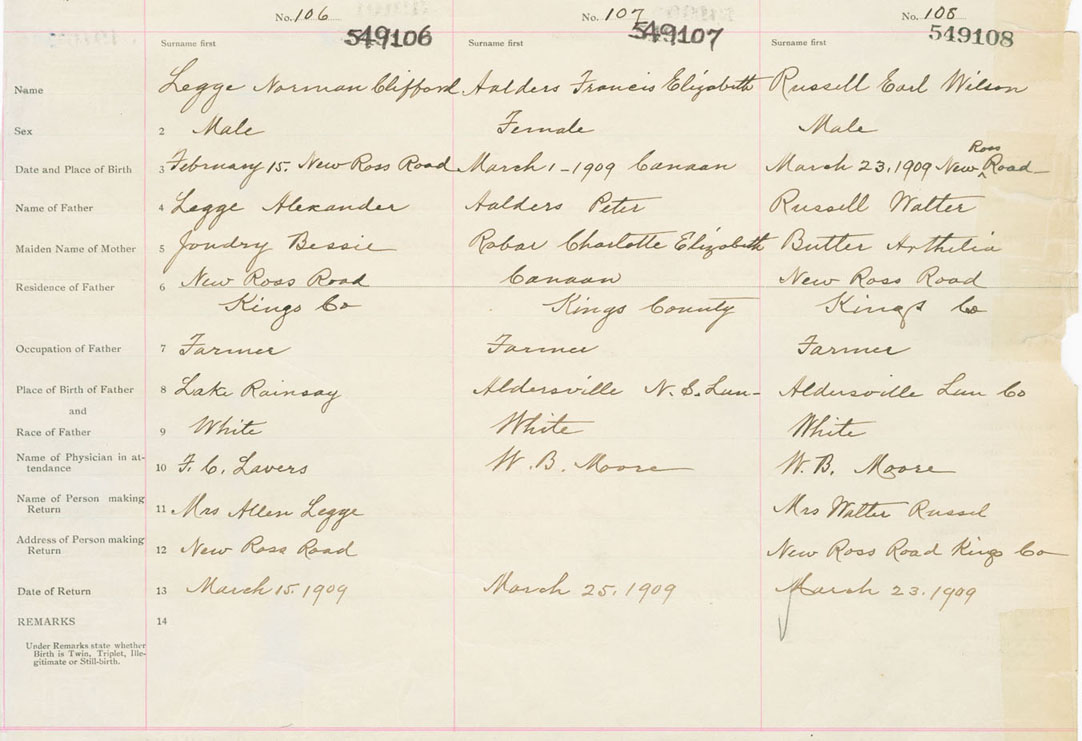 No. 106
No. 107
No. 108
549106
549107
549108
Surname first
Surname first
Surname first
Name
Legge Norman Clifford
Aalders Francis Elizabeth
Russell Earl Wilson
Sex
2
Male
Female
Male
Date and Place of Birth
3
February 15. New Ross Road
March 1-1909 Canaan
March 23, 1909 New Ross Road
Name of Father
4
Legge Alexander
Aalders Peter
Russell Walter
Maiden Name of Mother
5
Joudry Bessie
Robar Charlotte Elizabeth
Butler Arthelia
Residence of Father
6
New Ross Road
Canaan
New Ross Road
Kings Co
Kings County
Kings Co
Occupation of Father
7
Farmer
Farmer
Farmer
Place of Birth of Father
8
Lake Rainsay
Aldersville N.S. Lun-
Aldersville Lun Co
and
Race of Father
9
White
White
White
Name of Physician in at-
tendance
10
F. C. Lavers
W. B. Moore
W. B. Moore
Name of Person making
Return
11
Mrs Allen Legge
Mrs Walter Russel
Address of Person making
Return
12
New Ross Road
New Ross Road Kings Co
Date of Return
13
March 15. 1909
March 25. 1909
March 23. 1909
REMARKS
14
Under Remarks state whether
Birth is Twin, Triplet, Ille-
gitimate or Still-birth.